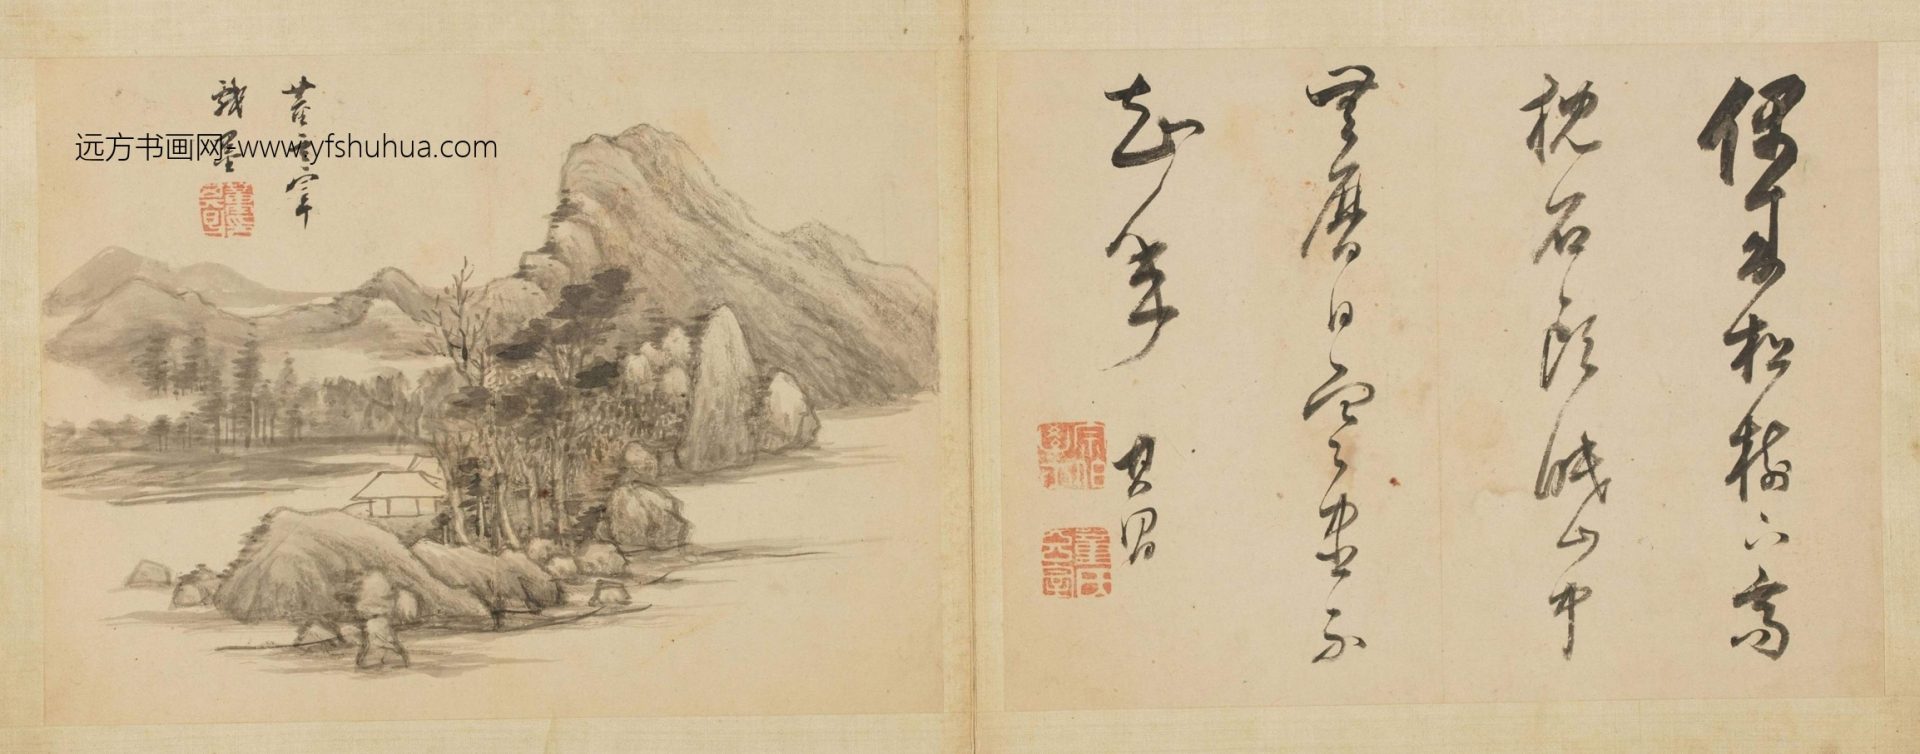 偶來松樹下高
枕石頭眠山中
無曆日寒盡不
知年 其昌
董玄宰
戲墨
远方书画网-www.yfshuhua.com